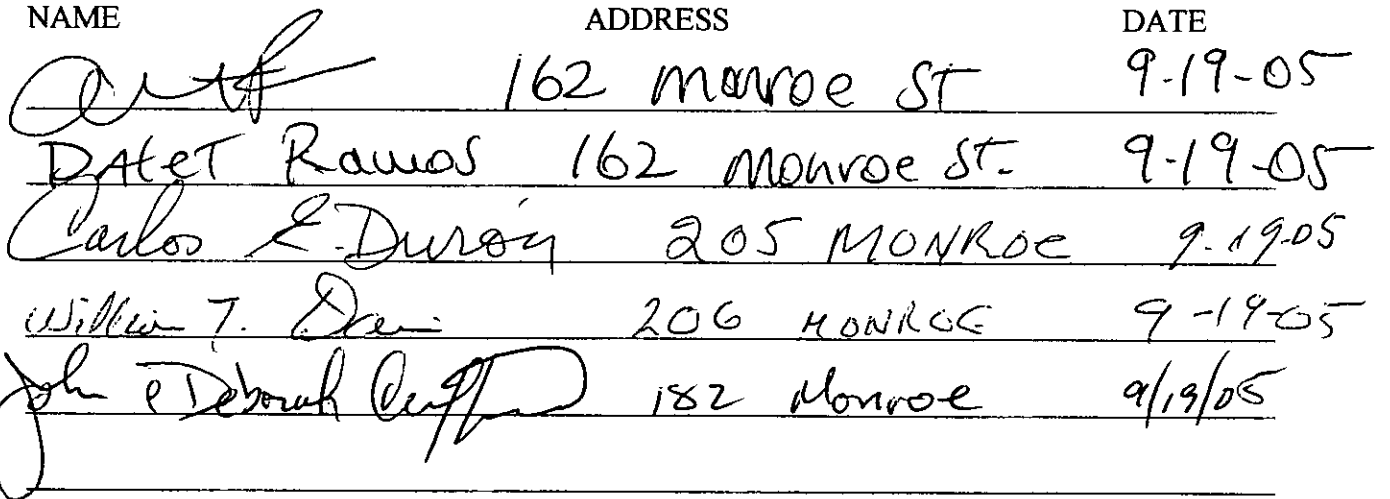 NAME ADDRESS DATE
162 Monroe ST 9-19-05
Ramos 162 Monroe ST. 9-19-05
Carlos E. Durón 205 MONROE 9-19-05
William T. 206 MONROE 9-19-05
John & Deborah 182 Monroe 9/19/05